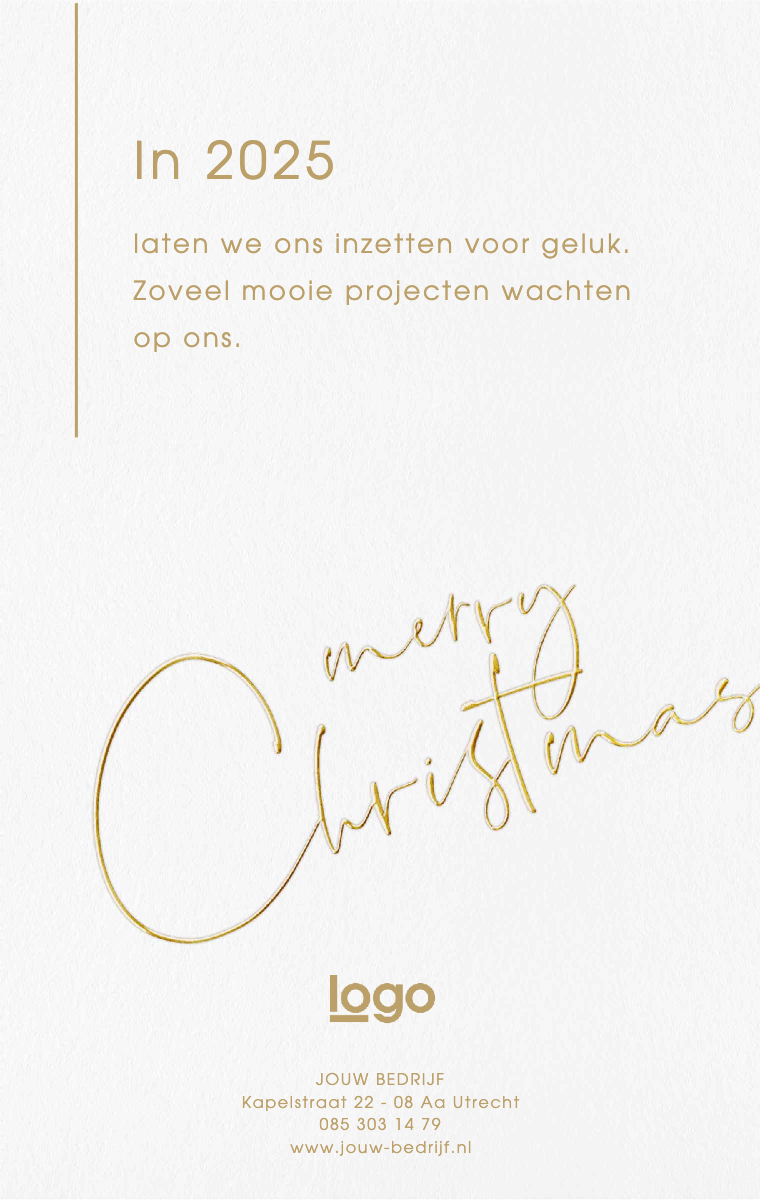 In 2025
laten we ons inzetten voor geluk.
Zoveel mooie projecten wachten
op ons.
merry
Christmas
logo
JOUW BEDRIJF
Kapelstraat 22 - 08 Aa Utrecht
085 303 14 79
www.jouw-bedrijf.nl